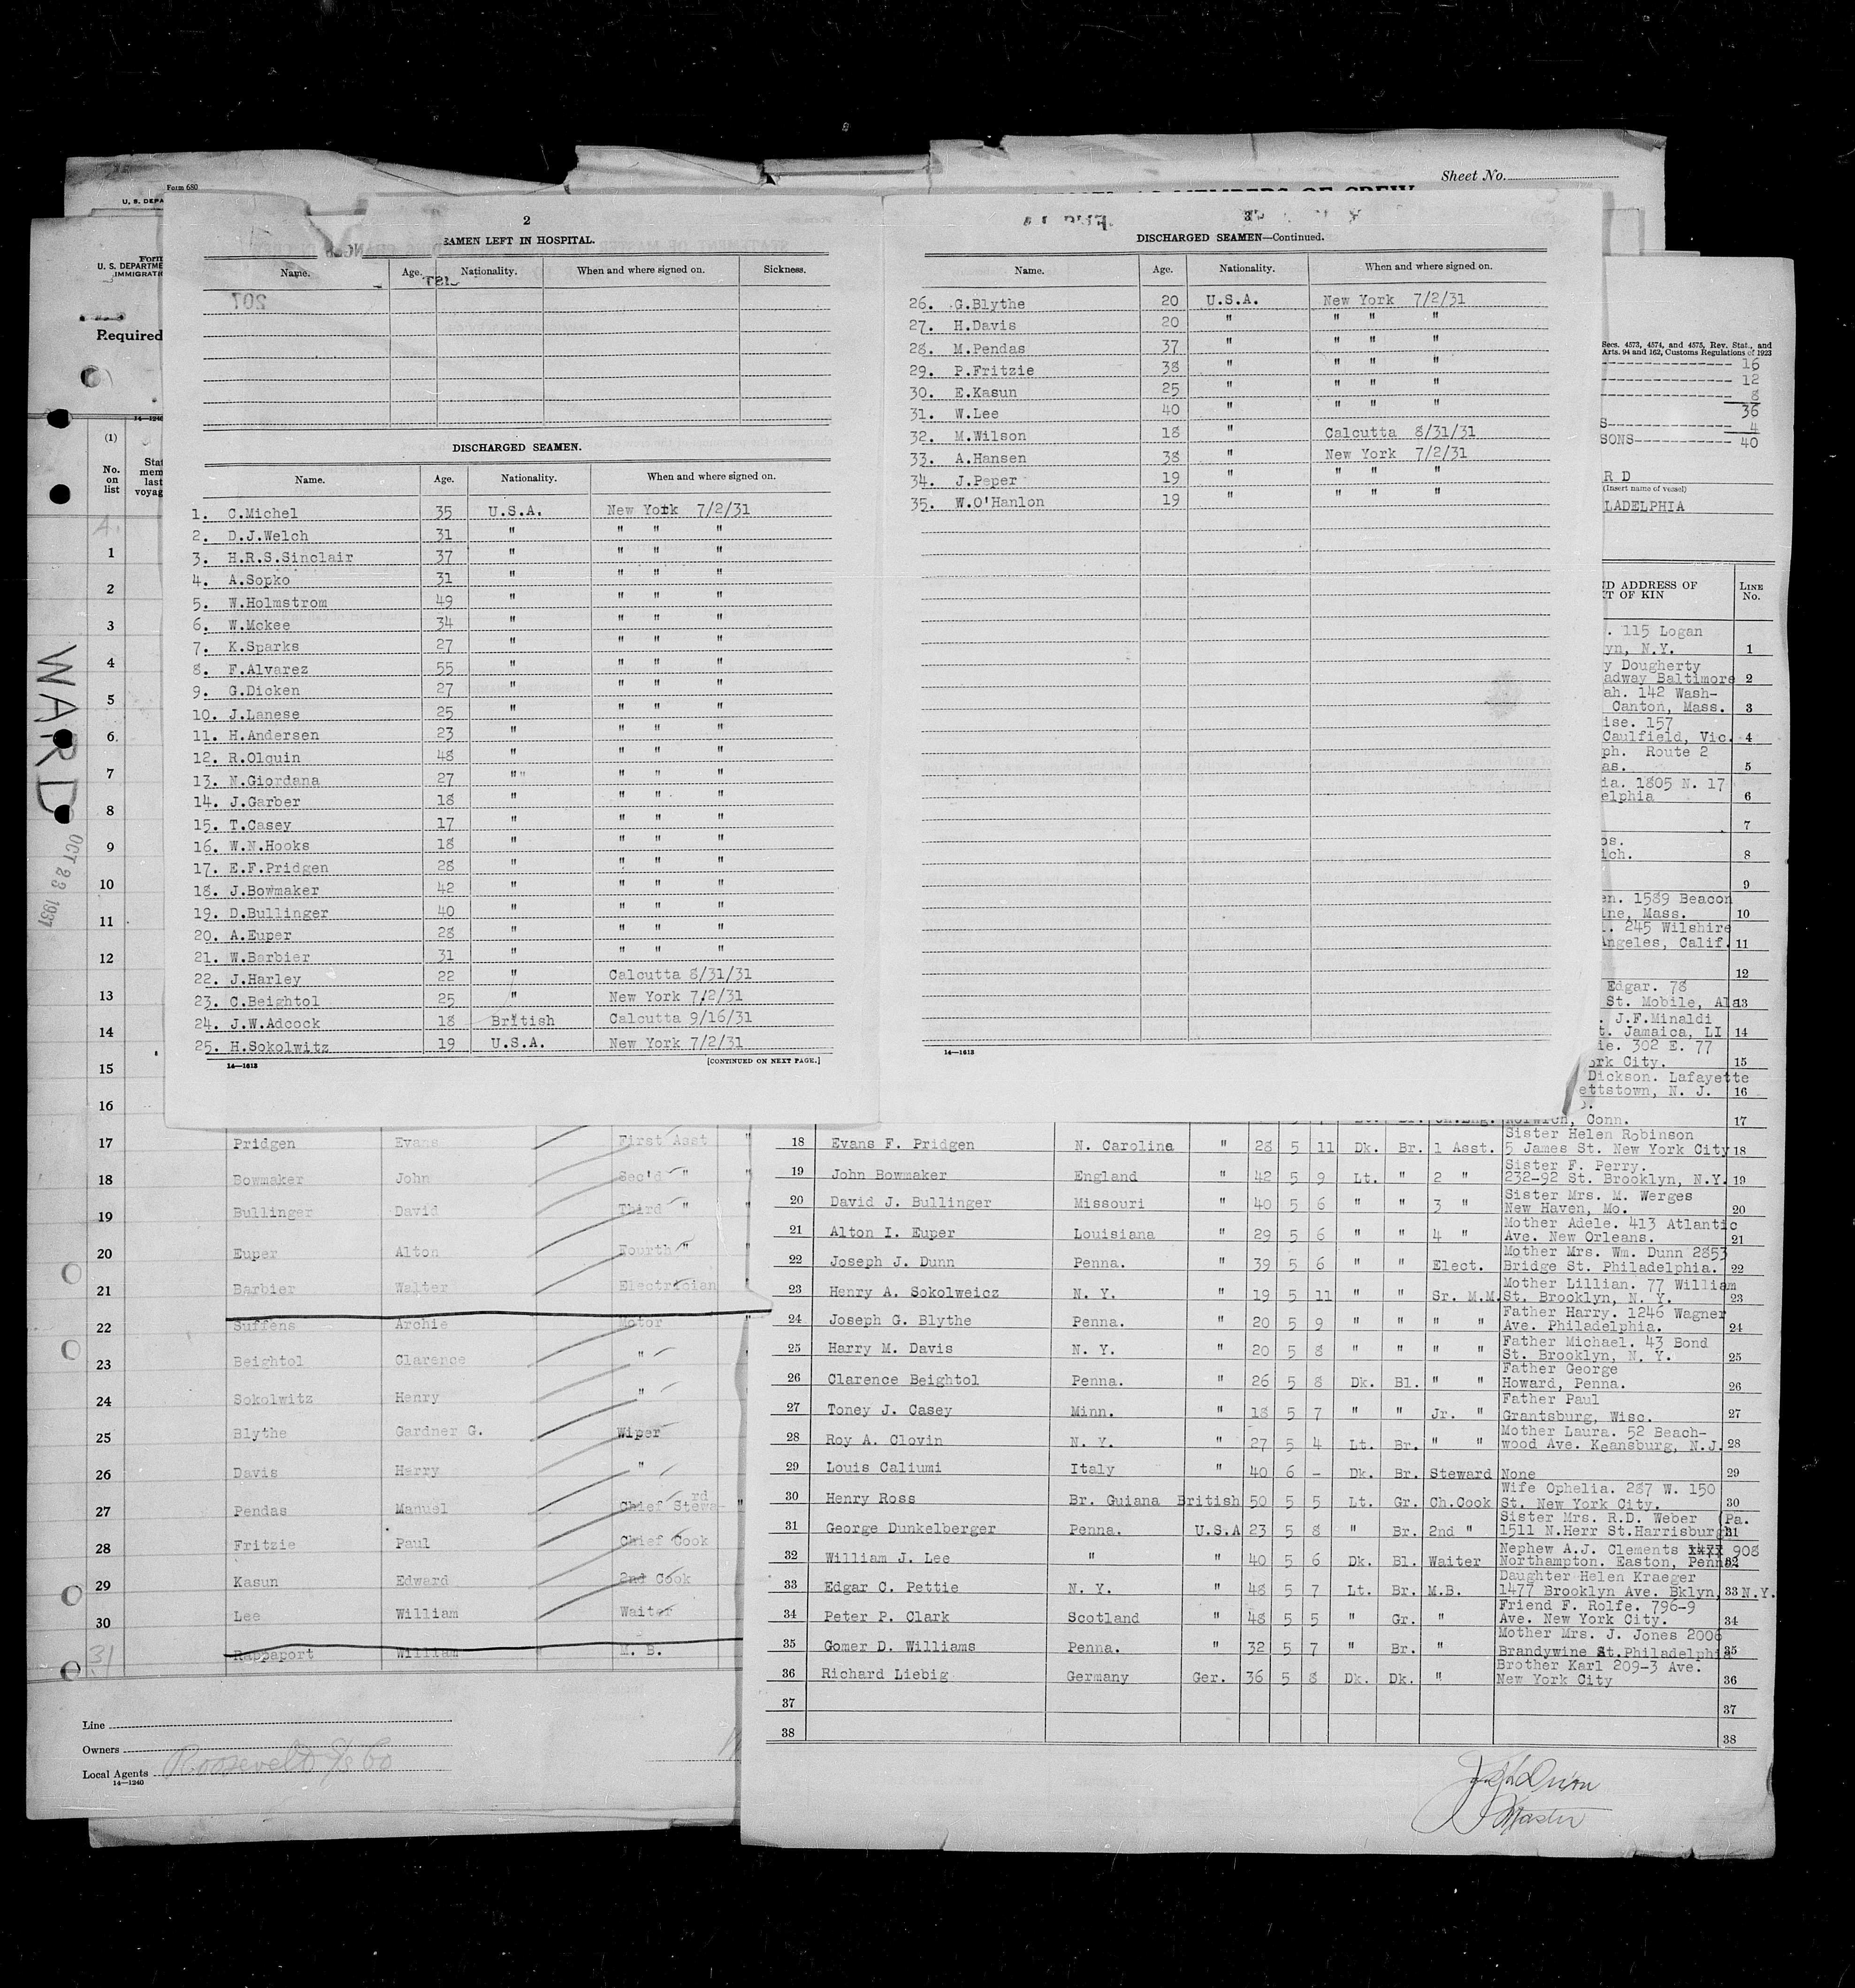 Sheet No.
Form 680
U. S. DEPA
MEMBERS OF CREW
Form
U. S. DEPARTME
IMMIGRATI
Required
14—1240
(1)
No.
on
list
Stat
mem
last
voyag
1
2
3
4
5
6
7
8
9
10
11
12
13
14
15
16
WARD
OCT 23 1931
2
SEAMEN LEFT IN HOSPITAL.
Name. Age. Nationality. When and where signed on. Sickness.
207
DISCHARGED SEAMEN.
Name. Age. Nationality. When and where signed on.
1. C.Michel 35 U.S.A. New York 7/2/31
2. D.J.Welch 31 " " " "
3. H.R.S.Sinclair 37 " " " "
4. A.Sopko 31 " " " "
5. W.Holmstrom 49 " " " "
6. W.Mckee 34 " " " "
7. K.Sparks 27 " " " "
8. F.Alvarez 55 " " " "
9. G.Dicken 27 " " " "
10. J.Lanese 25 " " " "
11. H.Andersen 23 " " " "
12. R.Olquin 48 " " " "
13. N.Giordana 27 "" " " "
14. J.Garber 18 " " " "
15. T.Casey 17 " " " "
16. W.N.Hooks 18 " " " "
17. E.F.Pridgen 28 " " " "
18. J.Bowmaker 42 " " " "
19. D.Bullinger 40 " " " "
20. A.Euper 28 " " " "
21. W.Barbier 31 " " " "
22. J.Harley 22 " Calcutta 8/31/31
23. C.Beightol 25 " New York 7/2/31
24. J.W.Adcock 18 British Calcutta 9/16/31
25. H.Sokolwitz 19 U.S.A. New York 7/2/31
14—1613 [CONTINUED ON NEXT PAGE.]
DISCHARGED SEAMEN—Continued.
Name. Age. Nationality. When and where signed on.
26. G.Blythe 20 U.S.A. New York 7/2/31
27. H.Davis 20 " " " "
28. M.Pendas 37 " " " "
29. P.Fritzie 38 " " " "
30. E.Kasun 25 " " " "
31. W.Lee 40 " " " "
32. M.Wilson 18 " Calcutta 8/31/31
33. A.Hansen 38 " New York 7/2/31
34. J.Peper 19 " " " "
35. W.O'Hanlon 19 " " " "
14—1613
Secs. 4573, 4574, and 4575, Rev. Stat., and
Arts. 94 and 162, Customs Regulations of 1923
16
12
8
36
S 4
SONS 40
R D
(Insert name of vessel)
LADELPHIA
ND ADDRESS OF
T OF KIN
LINE
No.
. 115 Logan
yn, N.Y. 1
y Dougherty
adway Baltimore 2
ah. 142 Wash-
Canton, Mass. 3
ise. 157
Caulfield, Vic. 4
ph. Route 2
as. 5
ia. 1805 N. 17
elphia 6
7
os.
ich. 8
9
en. 1589 Beacon
ine, Mass. 10
. 245 Wilshire
Angeles, Calif. 11
12
Edgar. 78
St. Mobile, Ala 13
. J.F.Minaldi
t. Jamaica, LI 14
ie. 302 E. 77
ork City. 15
Dickson. Lafayette
ettstown, N. J. 16
Norwich, Conn. 17
17 Pridgen Evans First Asst "
18 Bowmaker John Sec'd "
19 Bullinger David Third " "
20 Euper Alton Fourth "
21 Barbier Walter Electrician
22 Suffens Archie Motor "
23 Beightol Clarence "
24 Sokolwitz Henry "
25 Blythe Gardner G. Wiper
26 Davis Harry "
27 Pendas Manuel Chief Steward "
28 Fritzie Paul Chief Cook
29 Kasun Edward 2nd Cook
30 Lee William Waiter
31 Rappaport William M. B.
Line
Owners
Local Agents Roosevelt S/S Co
14—1240
18 Evans F. Pridgen N. Carolina " 28 5 11 Dk. Br. 1 Asst. Sister Helen Robinson
5 James St. New York City 18
19 John Bowmaker England " 42 5 9 Lt. " 2 " Sister F. Perry.
232-92 St. Brooklyn, N.Y. 19
20 David J. Bullinger Missouri " 40 5 6 " " 3 " Sister Mrs. M. Werges
New Haven, Mo. 20
21 Alton I. Euper Louisiana " 29 5 6 " " 4 " Mother Adele. 413 Atlantic
Ave. New Orleans. 21
22 Joseph J. Dunn Penna. " 39 5 6 " " Elect. Mother Mrs. Wm. Dunn 2853
Bridge St. Philadelphia. 22
23 Henry A. Sokolweicz N. Y. " 19 5 11 " " Sr. M.M. Mother Lillian. 77 William
St. Brooklyn, N. Y. 23
24 Joseph G. Blythe Penna. " 20 5 9 " " " " Father Harry. 1246 Wagner
Ave. Philadelphia. 24
25 Harry M. Davis N. Y. " 20 5 8 " " " " Father Michael. 43 Bond
St. Brooklyn, N. Y. 25
26 Clarence Beightol Penna. " 26 5 8 Dk. Bl. " " Father George
Howard, Penna. 26
27 Toney J. Casey Minn. " 18 5 7 " " Jr. " Father Paul
Grantsburg, Wisc. 27
28 Roy A. Clovin N. Y. " 27 5 4 Lt. Br. " " Mother Laura. 52 Beach-
wood Ave. Keansburg, N.J. 28
29 Louis Caliumi Italy " 40 6 - Dk. Br. Steward None 29
30 Henry Ross Br. Guiana British 50 5 5 Lt. Gr. Ch.Cook Wife Ophelia. 287 W. 150
St. New York City. 30
31 George Dunkelberger Penna. U.S.A 23 5 8 " Br. 2nd " Sister Mrs. R.D. Weber (Pa.
1511 N.Herr St.Harrisburgh 31
32 William J. Lee " " 40 5 6 Dk. Bl. Waiter Nephew A.J. Clements 1477 908
Northampton. Easton, Penna. 32
33 Edgar C. Pettie N. Y. " 48 5 7 Lt. Br. M.B. Daughter Helen Kraeger
1477 Brooklyn Ave. Bklyn, 33 N.Y.
34 Peter P. Clark Scotland " 48 5 5 " Gr. " Friend F. Rolfe. 796-9
Ave. New York City. 34
35 Gomer D. Williams Penna. " 32 5 7 " Br. " Mother Mrs. J. Jones 2006
Brandywine St.Philadelphia 35
36 Richard Liebig Germany Ger. 36 5 8 Dk. Dk. " Brother Karl 209-3 Ave.
New York City 36
37 37
38 38
Master